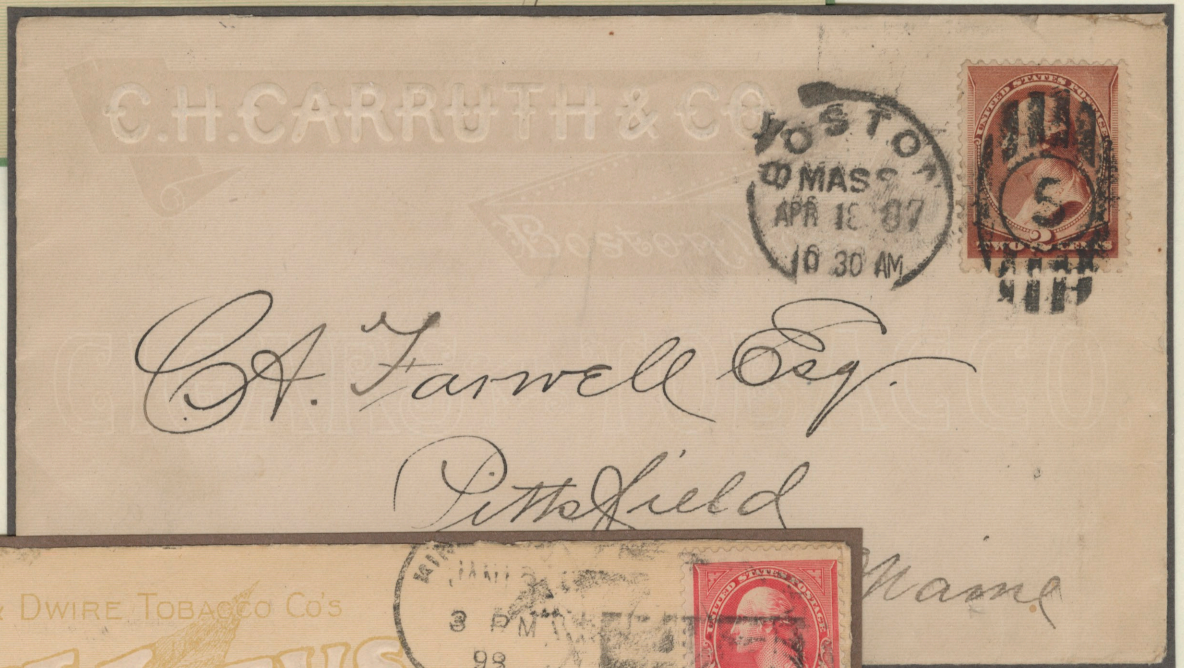 C.H. CARRUTH & CO
BOSTON
MASS
APR 18 87
10 30 AM
UNITED STATES POSTAGE
S
2
TWO CENTS
C.A. Farwell Esq.
Pittsfield
Maine
& DWIRE TOBACCO CO'S
3 PM
98
UNITED STATES POSTAGE